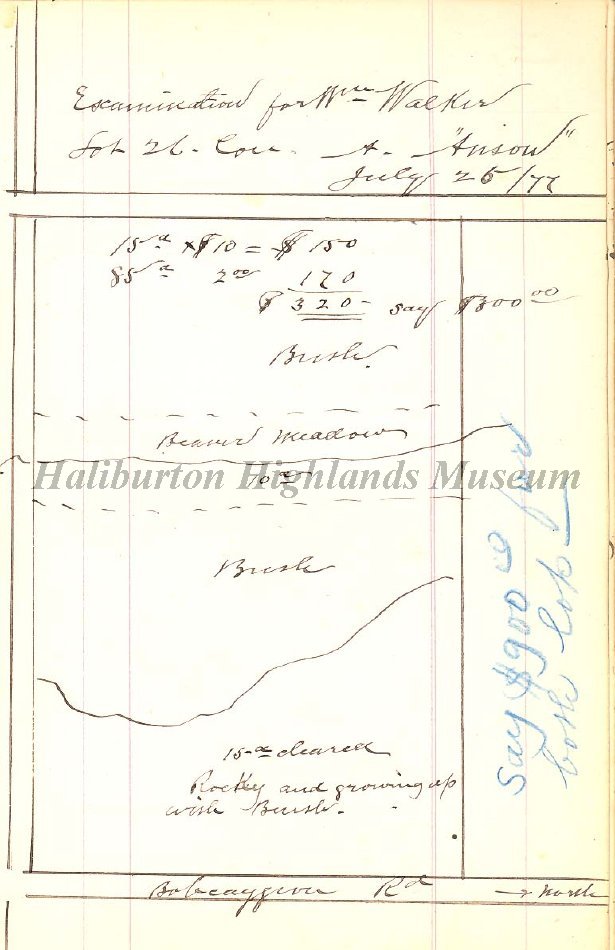 Examination for Wm Walker
Lot 26 - Con. A. "Anson"
July 25/77
15a x $10 = $150
85a 2 00 170
$320 - say $300 00
Brush.
Beaver Meadow
10 a
Haliburton Highlands Museum
Brush
15 a cleared
Rockey and growing up
with Brush.
Say $900 is for
both lots
Bobcaygeon Rd → North